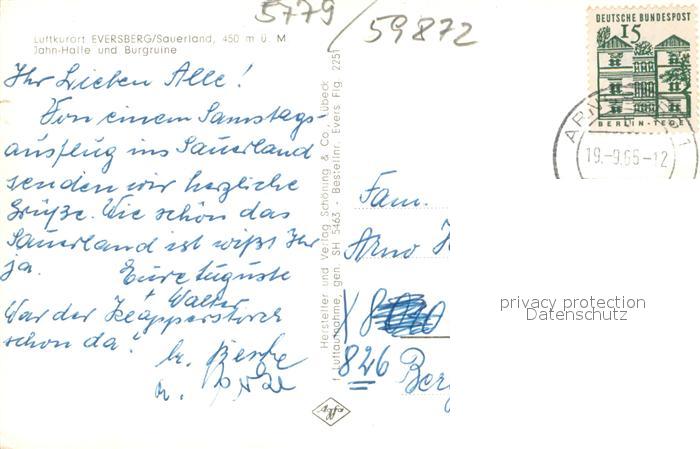 5779 / 59872
Luftkurort EVERSBERG/Sauerland, 450 m ü. M
Jahn-Halle und Burgruine
Ihr Lieben Alle!
Von einem Samstags-
ausflug ins Sauerland
senden wir herzliche
Grüße. Wie schön das
Sauerland ist wißt Ihr
ja. Eure Auguste
+ Walter
War der Klapperstorch
schon da?
u.
Hersteller und Verlag Schöning & Co., Lübeck
f. Luftaufnahme, gen. SH 5463 - Bestellnr. Evers Fig. 2251
DEUTSCHE BUNDESPOST
15
BERLIN-TEGEL
19.-9.66-12
Fam.
Arno
826
privacy protection
Datenschutz